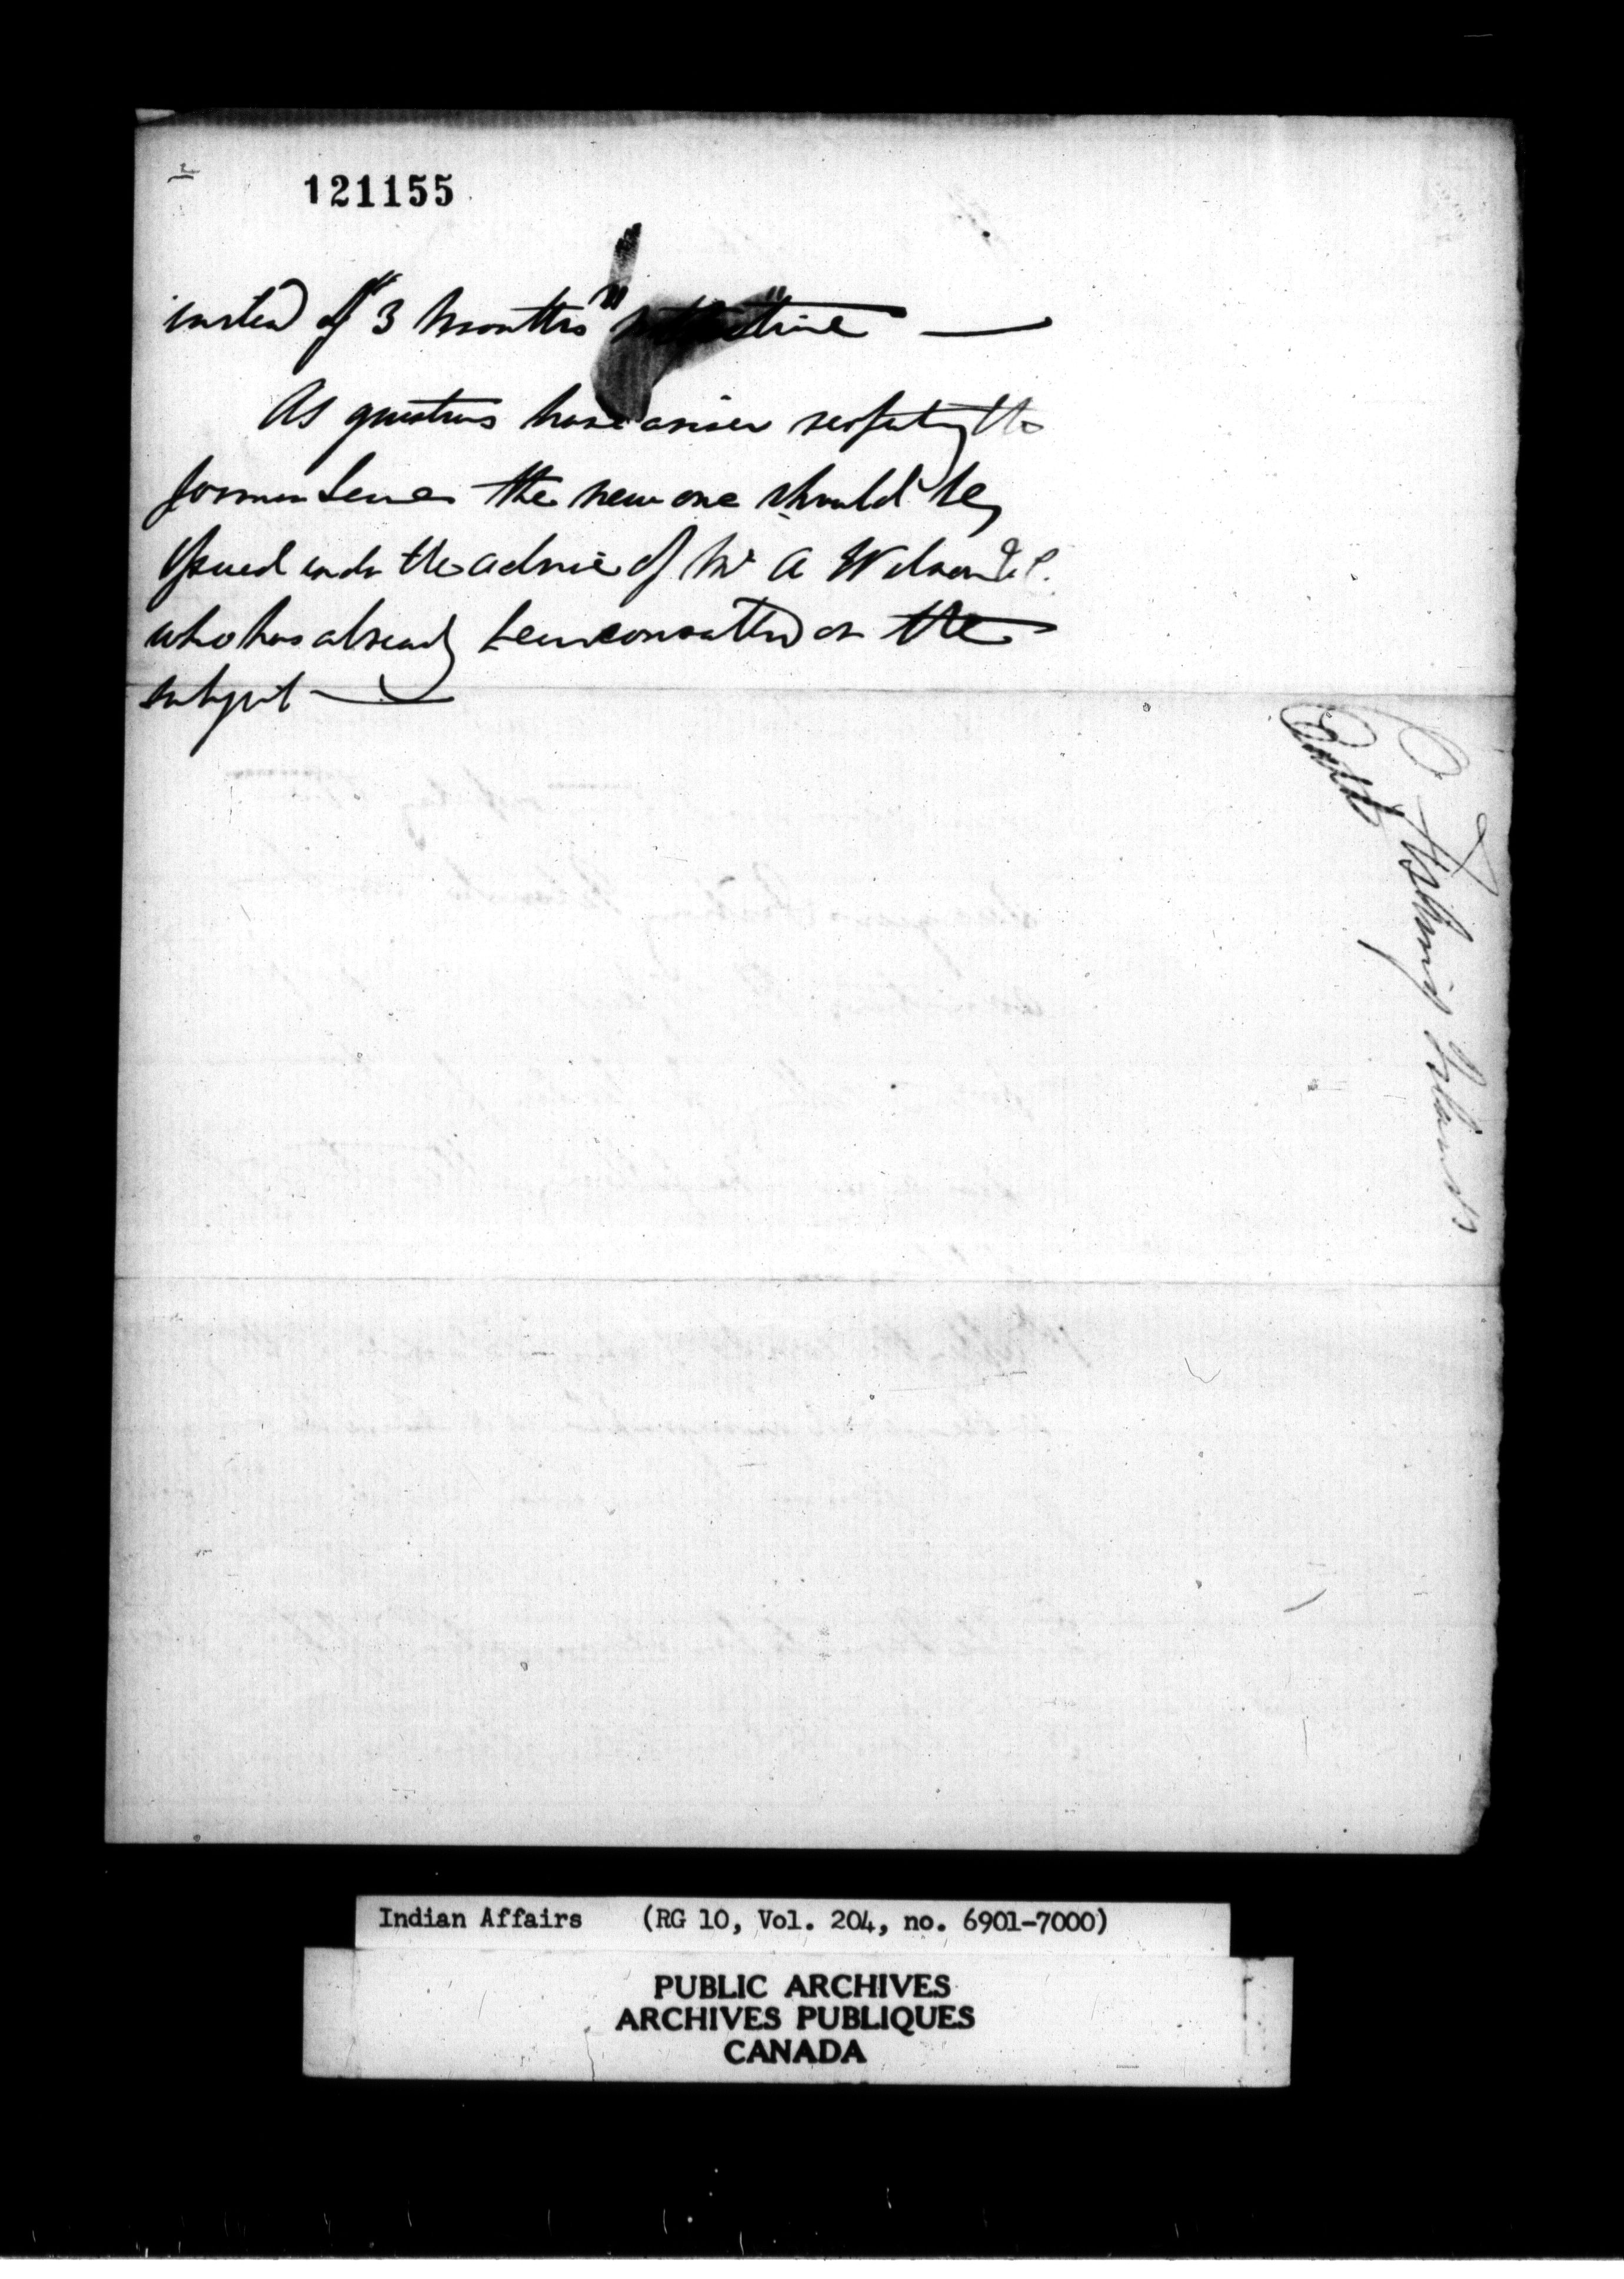 121155
instead of "3 months"
As questions have arisen respecting the
former Lease the new one should be
issued under the advice of Mr A Wilson Q.C.
who has already been consulted on the
subject
Fishing Islands
Indian Affairs (RG 10, Vol. 204, no. 6901-7000)
PUBLIC ARCHIVES
ARCHIVES PUBLIQUES
CANADA